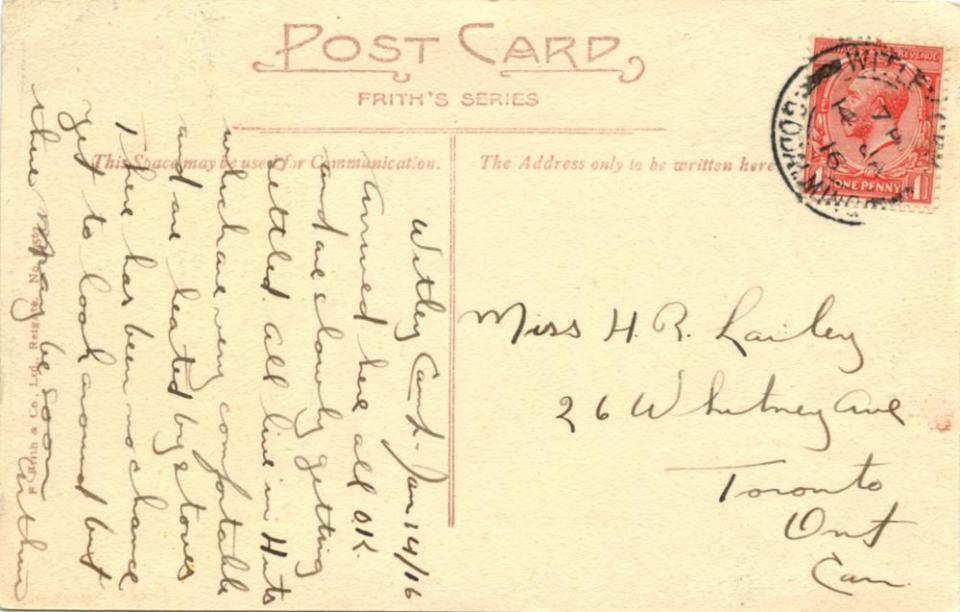 POST CARD
FRITH'S SERIES
This Space may be used for Communication.
The Address only to be written here
WITLEY
GODALMING
7 P
14 JA
16
REVENUE
ONE PENNY
1
Witley Camp. Jan 14/16
Arrived here all OK.
and are slowly getting
settled. All live in Huts
which are very comfortable
and are heated by stoves
There has been no chance
yet to look around but
there may be soon
Arthur
Miss H. R. Lailey
26 Whitney Ave
Toronto
Ont
Can.
F. Frith & Co., Ltd., Reigate. No.